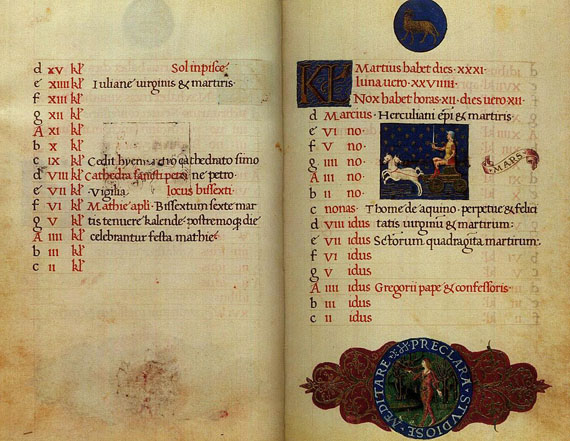 d xv kl' Sol in pisce·
e xiiii kl' Iuliane virginis & martiris·
f xiii kl'
g xii kl'
A xi kl'
b x kl'
c ix kl' Cedit hyems retro cathedrato simo
d viii kl' Cathedra sancti petri ne petro·
e vii kl' Vigilia· locus bissexti·
f vi kl' Mathie apli· Bissextum sexte mar
g v kl' tis tenuere kalende postremoq; die
A iiii kl' celebrantur festa mathie·
b iii kl'
c ii kl'
KL' Martius habet dies ·xxxi·
luna uero ·xxviiii·
Nox habet horas ·xii· dies uero ·xii·
d Marcius· Herculiani epi & martiris·
e vi no·
f v no·
g iiii no·
A iii no·
b ii no·
·MARS·
c nonas· Thome de aquino· perpetue & felici
d viii idus tatis uirginum & martirum·
e vii idus Sctorum quadraginta martirum·
f vi idus
g v idus
A iiii idus Gregorii pape & confessoris·
b iii idus
c ii idus
PRECLARA STVDIOSE MEDITARE